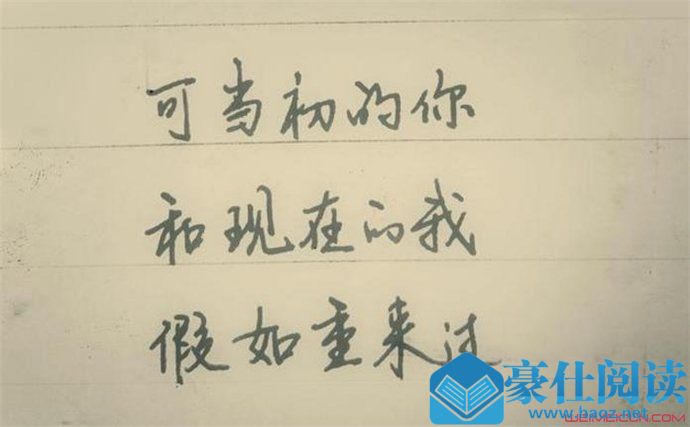 可当初的你
和现在的我
假如重来过
豪仕阅读
www.haoz.net
WEIMEICUN.COM